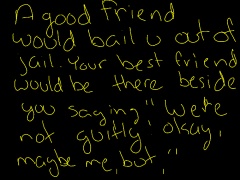 A good friend
would bail u out of
jail. Your best friend
would be there beside
you saying "We're
not guilty, okay,
maybe me, but,"